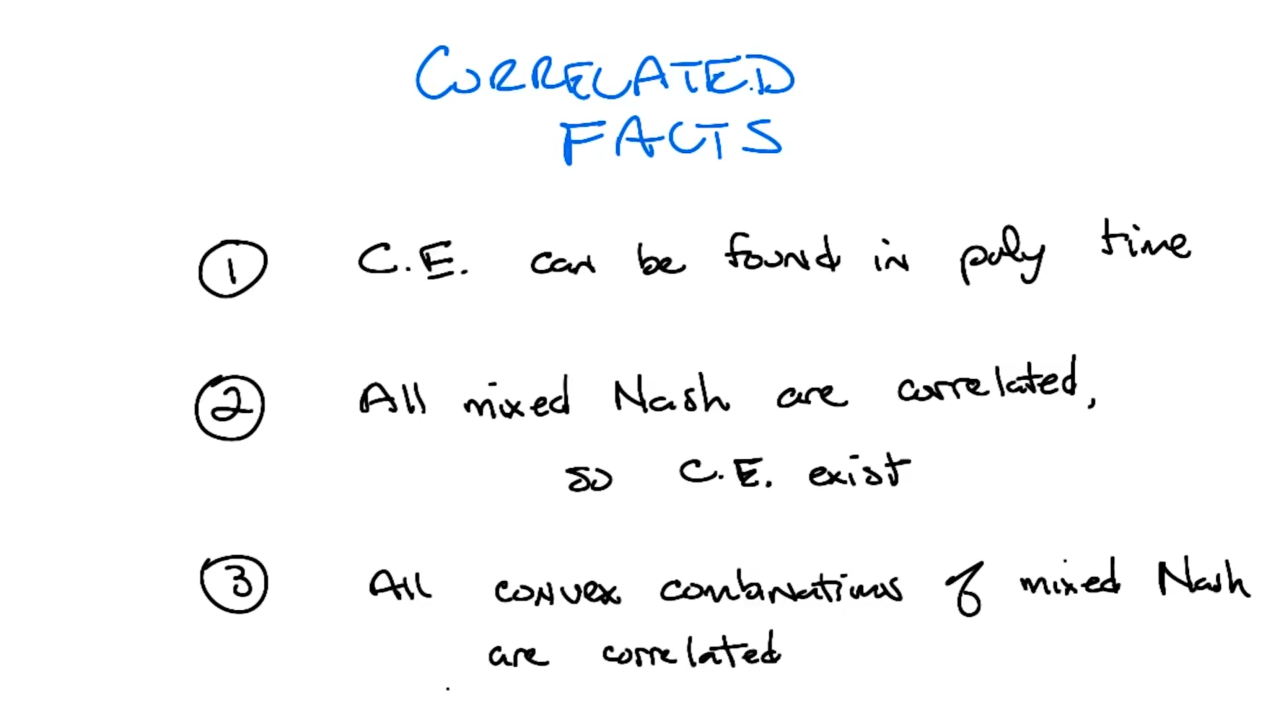 CORRELATED
FACTS
1 C.E. can be found in poly time
2 All mixed Nash are correlated,
so C.E. exist
3 All convex combinations of mixed Nash
are correlated